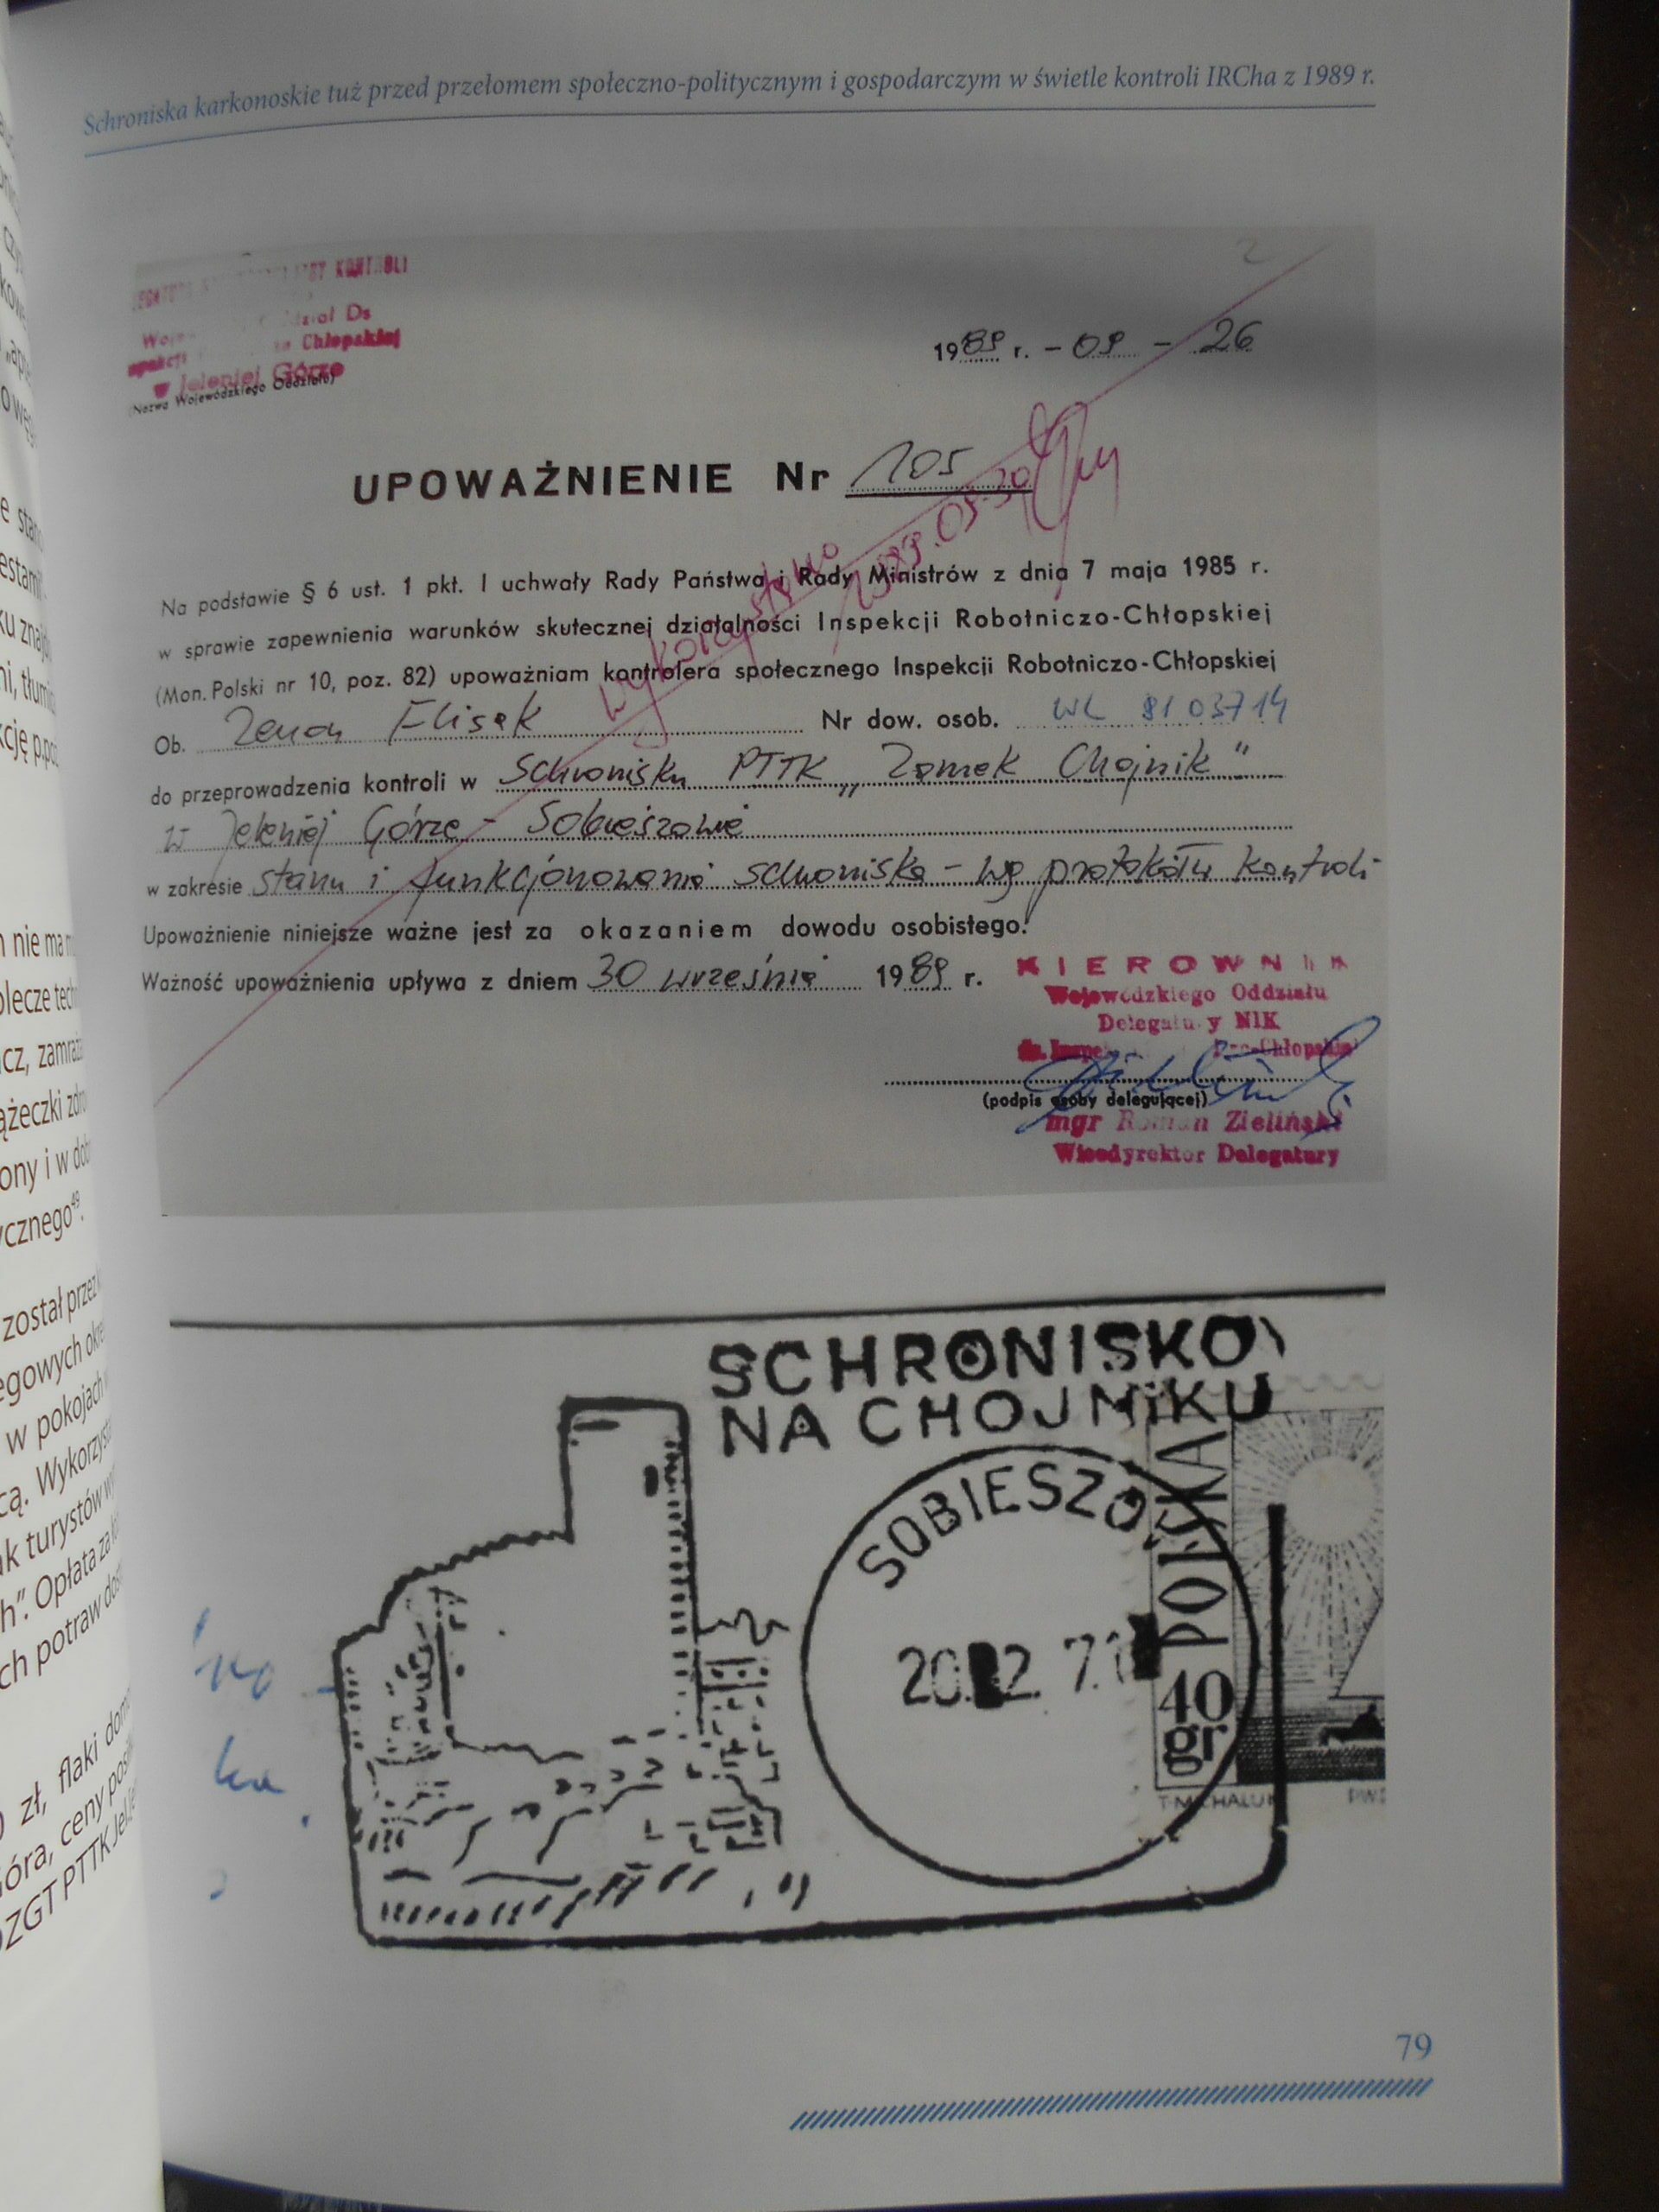 Schroniska karkonoskie tuż przed przełomem społeczno-politycznym i gospodarczym w świetle kontroli IRCha z 1989 r.
KONTROLI
Ds
Chłopskiej
w Jeleniej Górze
(Nazwa Wojewódzkiego Oddziału)
2
1989 r. - 09 - 26
UPOWAŻNIENIE Nr 105
Wykorzystano
Na podstawie § 6 ust. 1 pkt. I uchwały Rady Państwa i Rady Ministrów z dnia 7 maja 1985 r.
w sprawie zapewnienia warunków skutecznej działalności Inspekcji Robotniczo-Chłopskiej
(Mon. Polski nr 10, poz. 82) upoważniam kontrolera społecznego Inspekcji Robotniczo-Chłopskiej
Ob. Zenon Elisek Nr dow. osob. WL 8103714
do przeprowadzenia kontroli w Schronisku PTTK „Zamek Chojnik"
w Jeleniej Górze - Sobieszowie
w zakresie stanu i funkcjonowania schroniska - wg protokółu kontroli
Upoważnienie niniejsze ważne jest za okazaniem dowodu osobistego.
Ważność upoważnienia upływa z dniem 30 września 1989 r.
KIEROWNIK
Wojewódzkiego Oddziału
Delegatury NIK
(podpis osoby delegującej)
mgr Roman Zieliński
Wicedyrektor Delegatury
SCHRONISKO
NA CHOJNIKU
SOBIESZÓ
POLSKA
40
gr
T. MICHALUK
PW
79
nie ma
zamra
ony i w
ycznego⁴⁹.
został przez
egowych
w pokojach
cą.
k turystów
h". Opłata za
ch potraw
zł, flaki
óra, ceny
OZGT PTTK